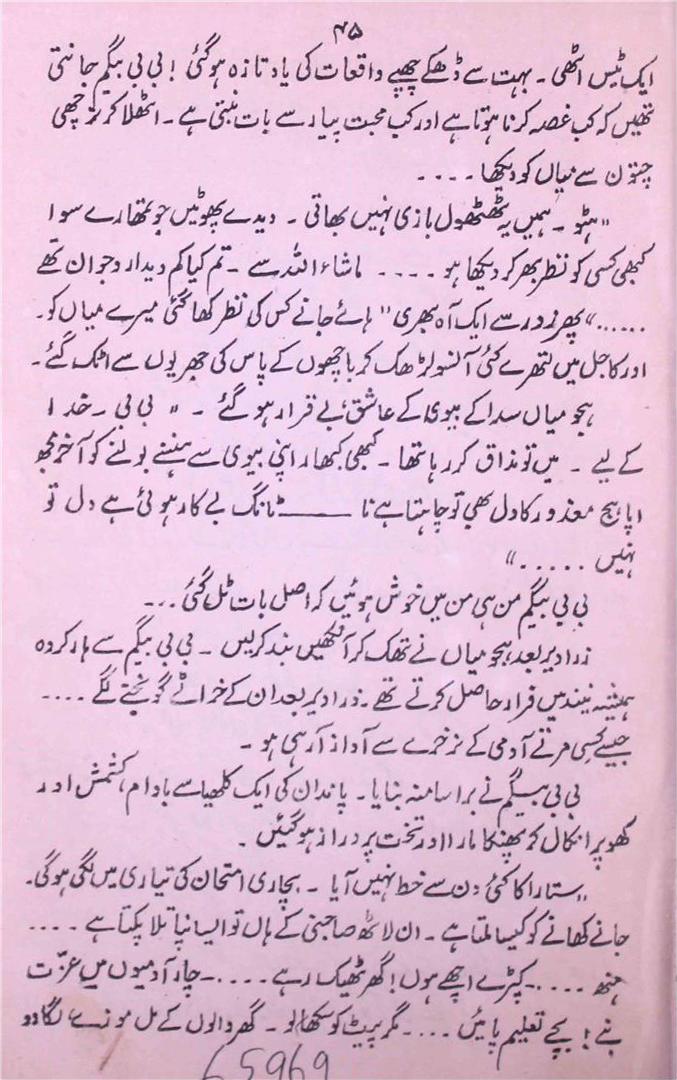 ۴۵
ایک ٹیس اٹھی ۔ بہت سے ڈھکے چھپے واقعات کی یاد تازہ ہوگئی ! بی بی بیگم جانتی
تھیں کہ کب غصہ کرنا ہوتا ہے اور کب محبت پیار سے بات بنتی ہے ۔ اٹھلا کر ترچھی
چتون سے میاں کو دیکھا ۔ ۔ ۔ ۔
"ہٹو ۔ ہمیں یہ ٹھٹھول بازی نہیں بھاتی ۔ دیدے پھوٹیں جو تمھارے سوا
کبھی کسی کو نظر بھر کر دیکھا ہو ۔ ۔ ۔ ۔ ماشاء اللہ سے ۔ تم کیا کم دیدارو جوان تھے
۔۔۔۔۔۔" پھر زور سے ایک آہ بھری "ہائے جانے کس کی نظر کھا گئی میرے میاں کو۔
اور کاجل میں لتھڑے کئی آنسو لڑھک کر باچھوں کے پاس کی جھریوں سے اٹک گئے ۔
ہجو میاں سدا کے بیوی کے عاشق، بے قرار ہو گئے ۔ " بی بی ۔ خدا
کے لیے ۔ میں تو مذاق کر رہا تھا ۔ کبھی کبھار اپنی بیوی سے ہنسنے بولنے کو آخر مجھ
اپاہج معذور کا دل بھی تو چاہتا ہے نا ــــــ ٹانگ بے کار ہوئی ہے دل تو
نہیں ۔ ۔ ۔ ۔ ۔ "
بی بی بیگم من ہی من میں خوش ہوئیں کہ اصل بات ٹل گئی ۔ ۔ ۔
ذرا دیر بعد ہجو میاں نے تھک کر آنکھیں بند کر لیں ۔ بی بی بیگم سے ہار کر وہ
ہمیشہ نیند میں فرار حاصل کرتے تھے ۔ ذرا دیر بعد ان کے خراٹے گونجنے لگے ۔ ۔ ۔ ۔
جیسے کسی مرتے آدمی کے نرخرے سے آواز آ رہی ہو ۔
بی بی بیگم نے برا سا منہ بنایا ۔ پاندان کی ایک کلھیا سے بادام، کشمش اور
کھوپرا نکال کر پھنکا مارا اور تخت پر دراز ہو گئیں ۔
"ستارا کا کئی دن سے خط نہیں آیا ۔ بچاری امتحان کی تیاری میں لگی ہو گی ۔
جانے کھانے کو کیسا ملتا ہے ۔ ان لاٹھ صاحبنی کے ہاں تو ایسا نپا تلا پکتا ہے ۔ ۔ ۔ ۔
ہنھ ۔ ۔ ۔ ۔ ۔ کپڑے اچھے ہوں ! گھر ٹھیک رہے ۔ ۔ ۔ ۔ ۔ چار آدمیوں میں عزّت
بنے ! بچے تعلیم پائیں ۔ ۔ ۔ ۔ مگر پیٹ کو سکھا لو ۔ گھر والوں کے مل موزے، لگا دو
65969